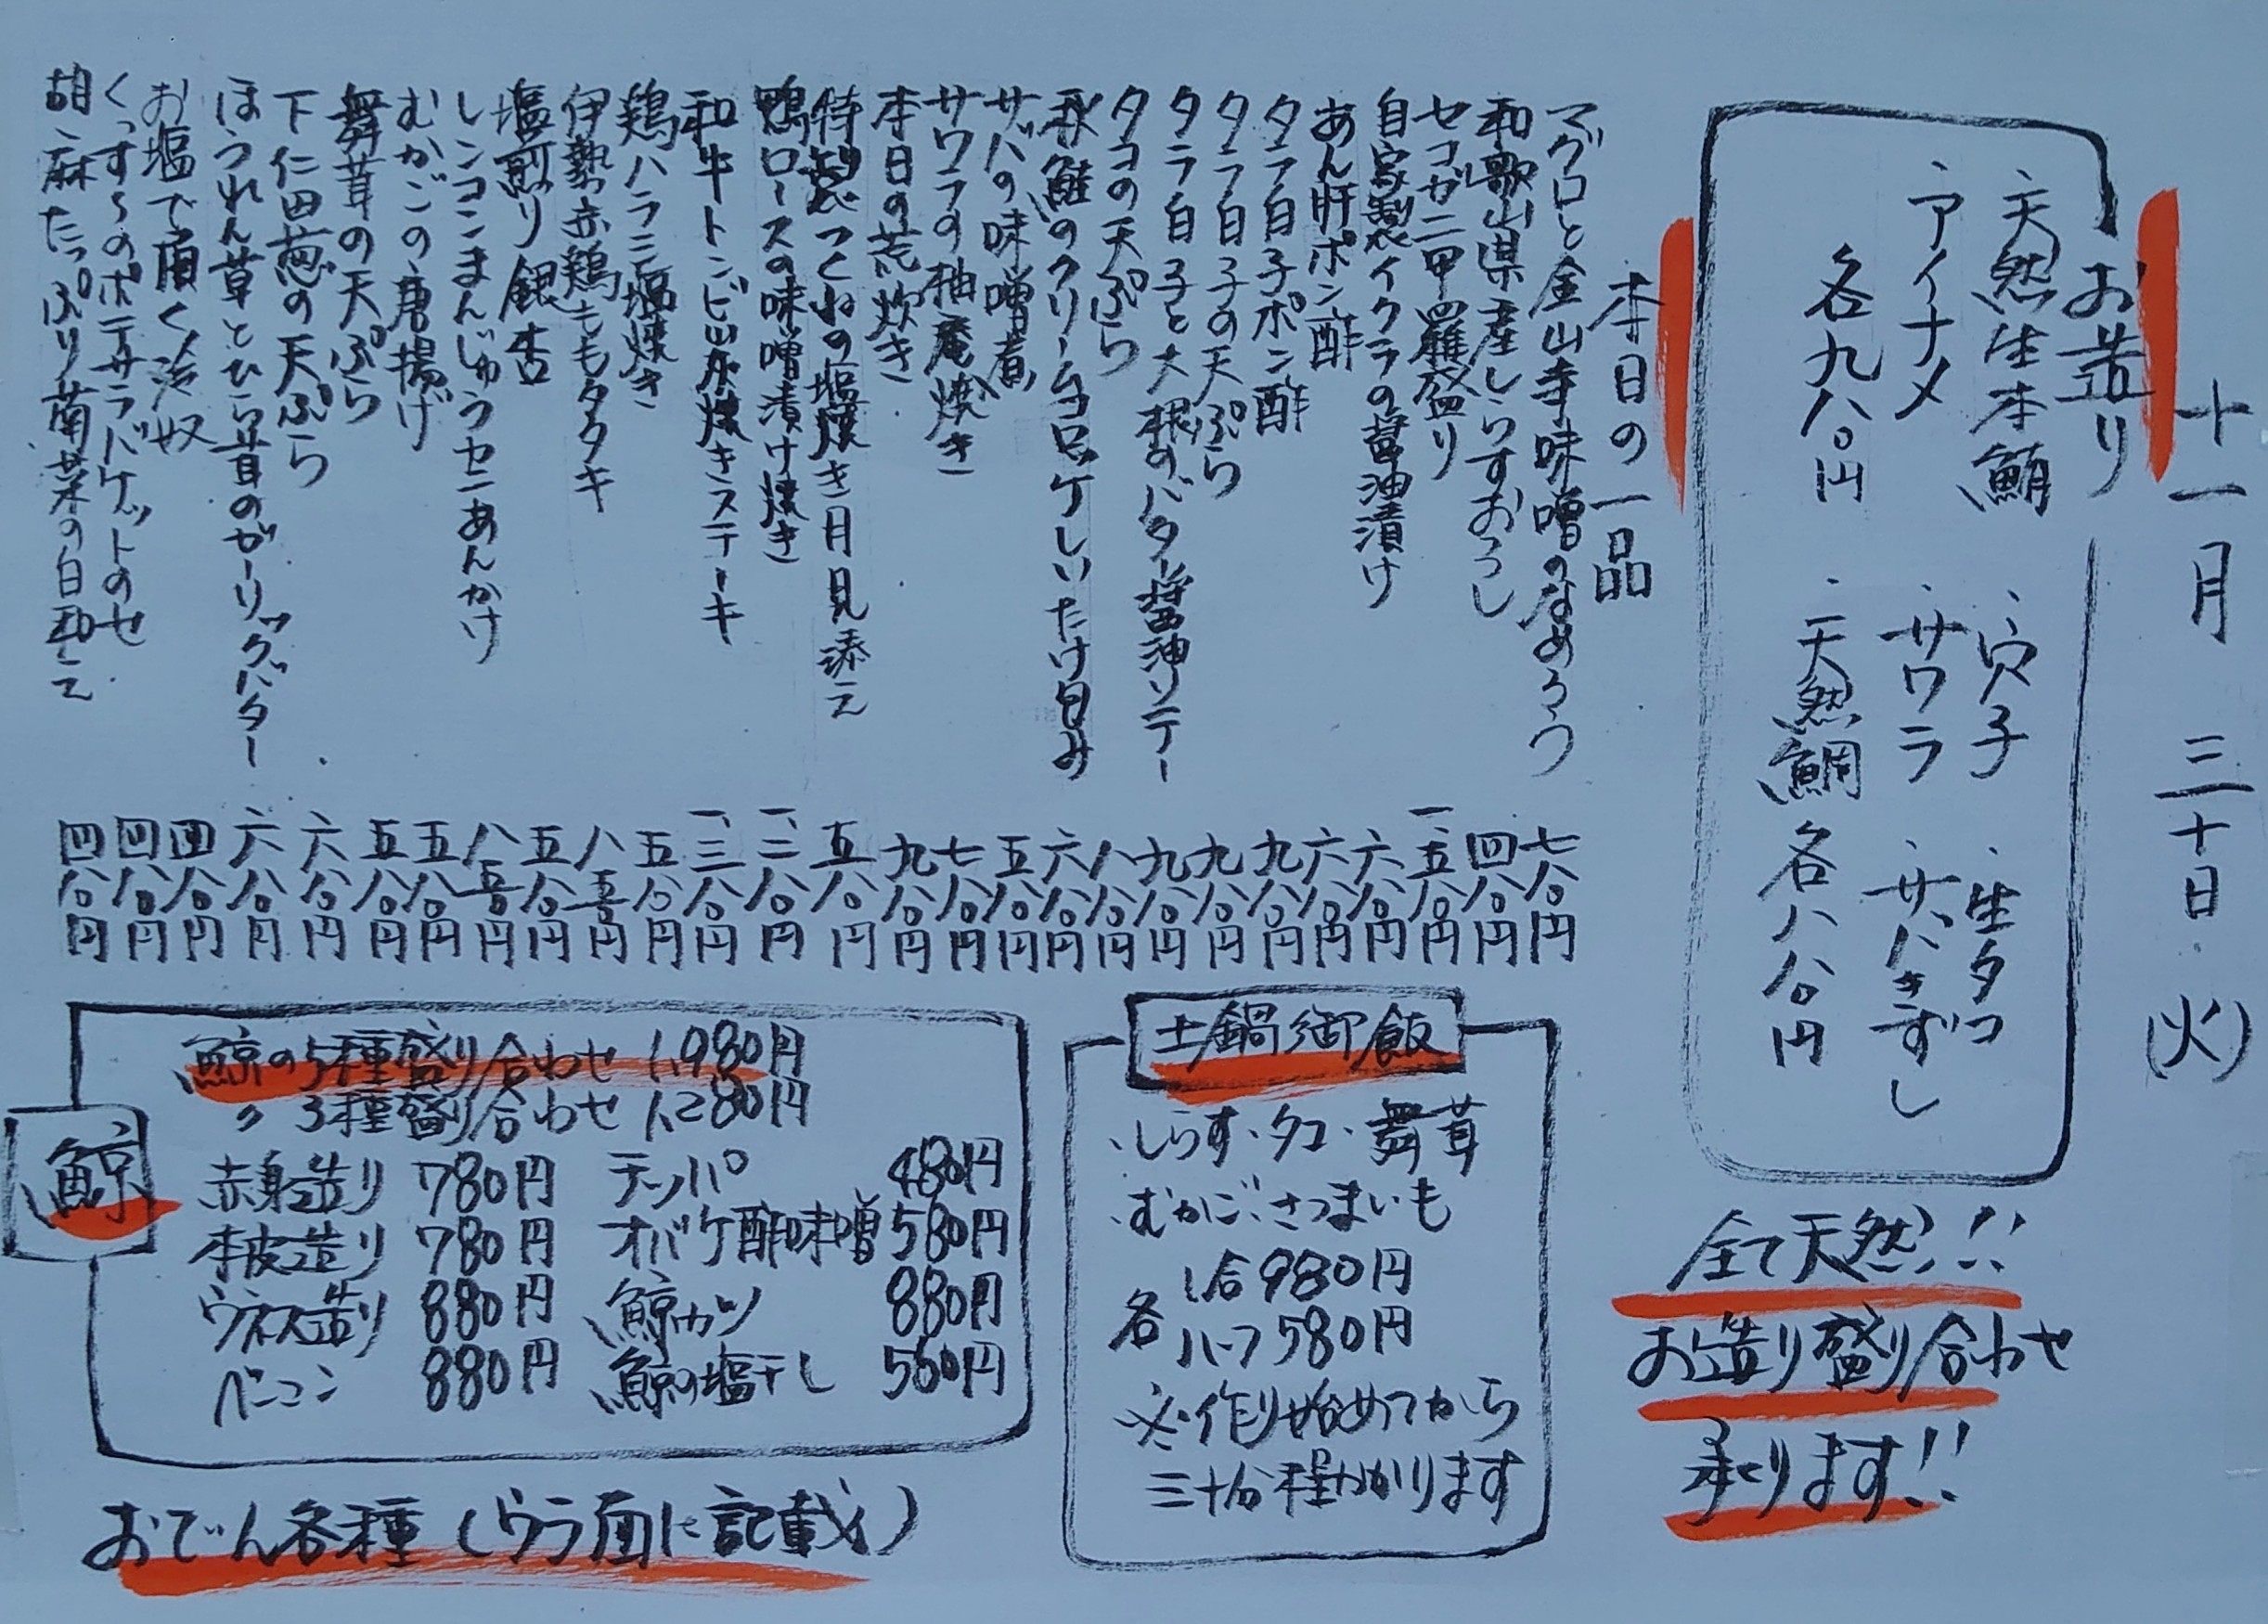 十一月三十日(火)
お造り
・天然生本鮪 ・穴子 ・生タコ
・アイナメ ・サワラ ・サバきずし
各九八〇円 ・天然鯛 各八八〇円
全て天然!!
お造り盛り合わせ
承ります!!
本日の一品
マグロと金山寺味噌のなめろう 七八〇円
和歌山県産しらすおろし 四八〇円
セコガニ甲羅盛り 一、五八〇円
自家製イクラの醤油漬け 六八〇円
あん肝ポン酢 六八〇円
タラ白子ポン酢 九八〇円
タラ白子の天ぷら 九八〇円
タラ白子と大根のバター醤油ソテー 九八〇円
タコの天ぷら 八八〇円
秋鮭のクリームコロッケしいたけ包み 六八〇円
サバの味噌煮 五八〇円
サワラの柚庵焼き 七八〇円
本日の荒炊き 九八〇円
特製つくねの塩焼き月見添え 五八〇円
鴨ロースの味噌漬け焼き 一、二八〇円
和牛トンビ山灰焼きステーキ 一、三八〇円
鶏ハラミ塩焼き 五八〇円
伊勢赤鶏ももタタキ 八五〇円
塩煎り銀杏 五八〇円
レンコンまんじゅうセコあんかけ 八五〇円
むかごの唐揚げ 五八〇円
舞茸の天ぷら 五八〇円
下仁田葱の天ぷら 六八〇円
ほうれん草とひら茸のガーリックバター 六八〇円
お塩で頂く冷奴 四八〇円
くっすーのポテサラバケットのせ 四八〇円
胡麻たっぷり菊菜の白和え 四八〇円
土鍋御飯
・しらす・タコ・舞茸
・むかご・さつまいも
各 1合980円
ハーフ580円
※作り始めてから
三十分程かかります
鯨
鯨の5種盛り合わせ 1,980円
〃 3種盛り合わせ 1,280円
赤身造り 780円 テッパ 480円
本皮造り 780円 オバケ酢味噌 580円
ウネス造り 880円 鯨カツ 880円
ベーコン 880円 鯨の塩干し 560円
おでん各種(ウラ面に記載)